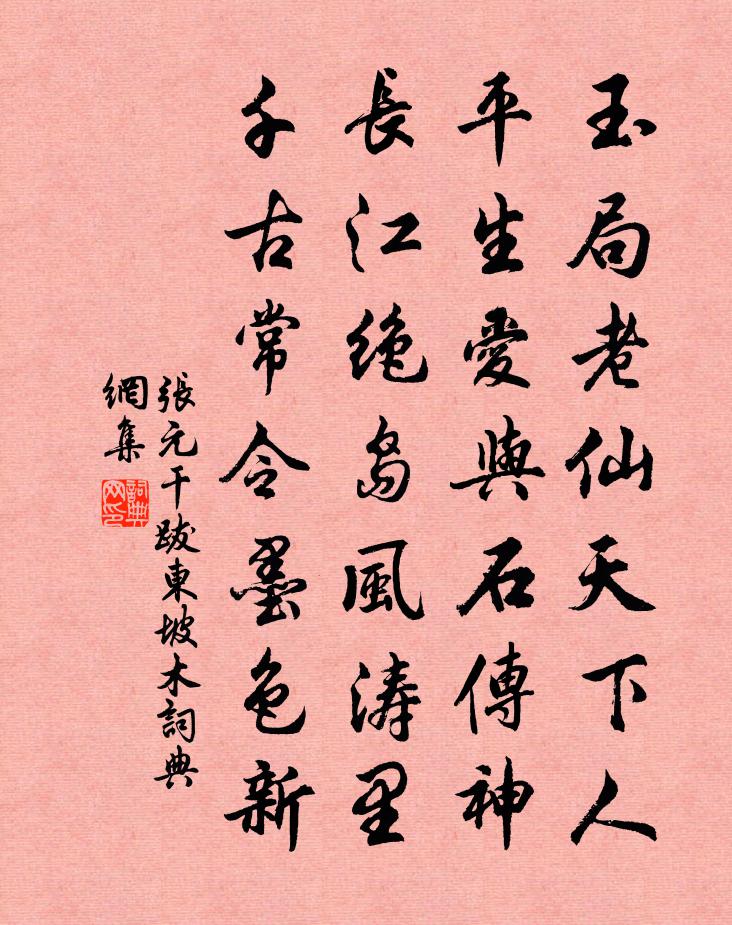 玉局老仙天下人
平生愛與石傳神
長江絶島風涛里
千古常令墨色新
張元干跋東坡木詞典
網集
詞典
网印